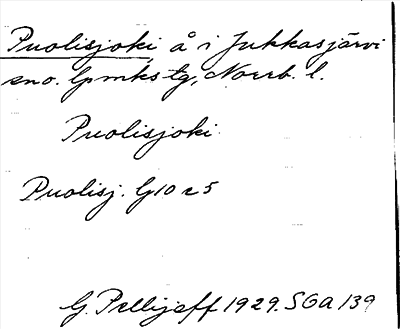 Puolisjoki å i Jukkasjärvi
sno. lpmks tg, Norrb. l.
Puolisjoki
Puolisj. G10 r 5
G. Pellijeff 1929. SGa 139